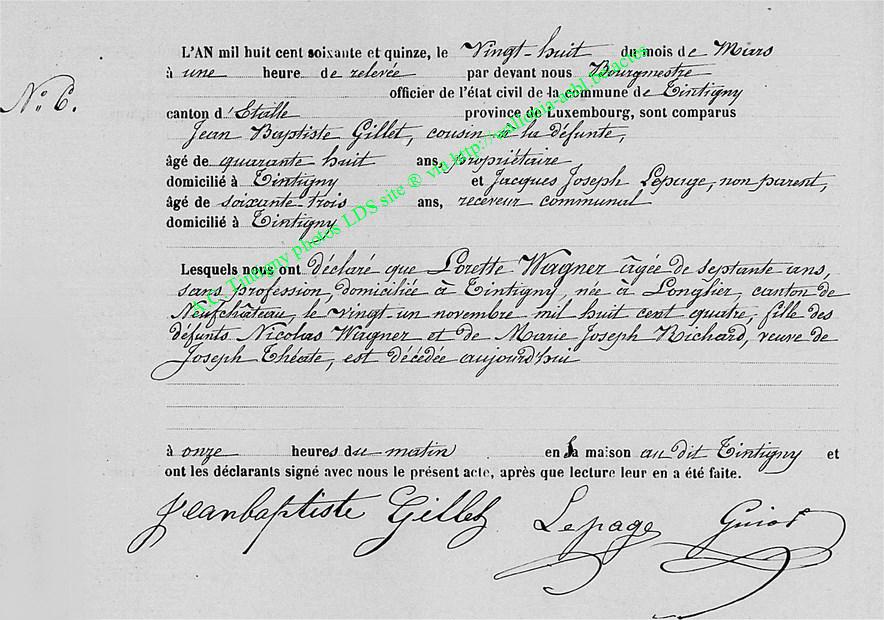 L'AN mil huit cent soixante et quinze, le Vingt-huit du mois de Mars
à une heure de relevée par devant nous Bourgmestre
N° 6. officier de l'état civil de la commune de Tintigny
canton d'Etalle province de Luxembourg, sont comparus
Jean Baptiste Gillet, cousin à la défunte,
âgé de quarante huit ans, propriétaire
domicilié à Tintigny et Jacques Joseph Lepage, non parent,
âgé de soixante-trois ans, receveur communal
domicilié à Tintigny
Lesquels nous ont déclaré que Lorette Wagner âgée de septante ans,
sans profession, domiciliée à Tintigny, née à Longlier, canton de
Neufchâteau, le vingt un novembre mil huit cent quatre, fille des
défunts Nicolas Wagner et de Marie Joseph Richard, veuve de
Joseph Théate, est décédée aujourd'hui
à onze heures du matin en sa maison au dit Tintigny et
ont les déclarants signé avec nous le présent acte, après que lecture leur en a été faite.
Jeanbaptiste Gillet Lepage Guiot
A.C. Tintigny photos LDS site ® via http://wallonia-asbl.be/actes